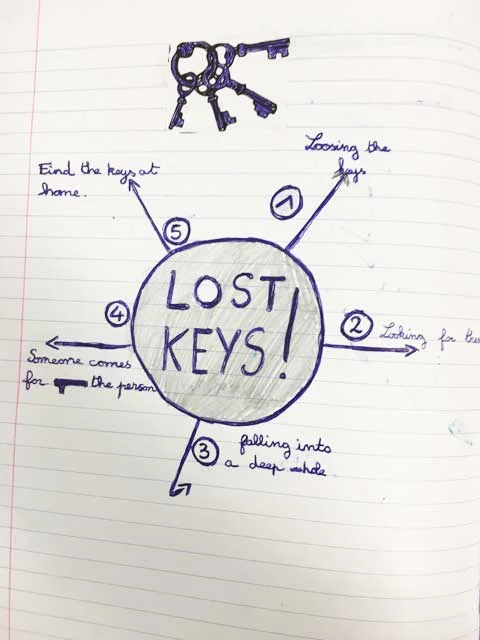 1
Loosing the
keys
2
Looking for
3
falling into
a deep hole.
4
Someone comes
for the person
5
Find the keys at
home.
LOST
KEYS!